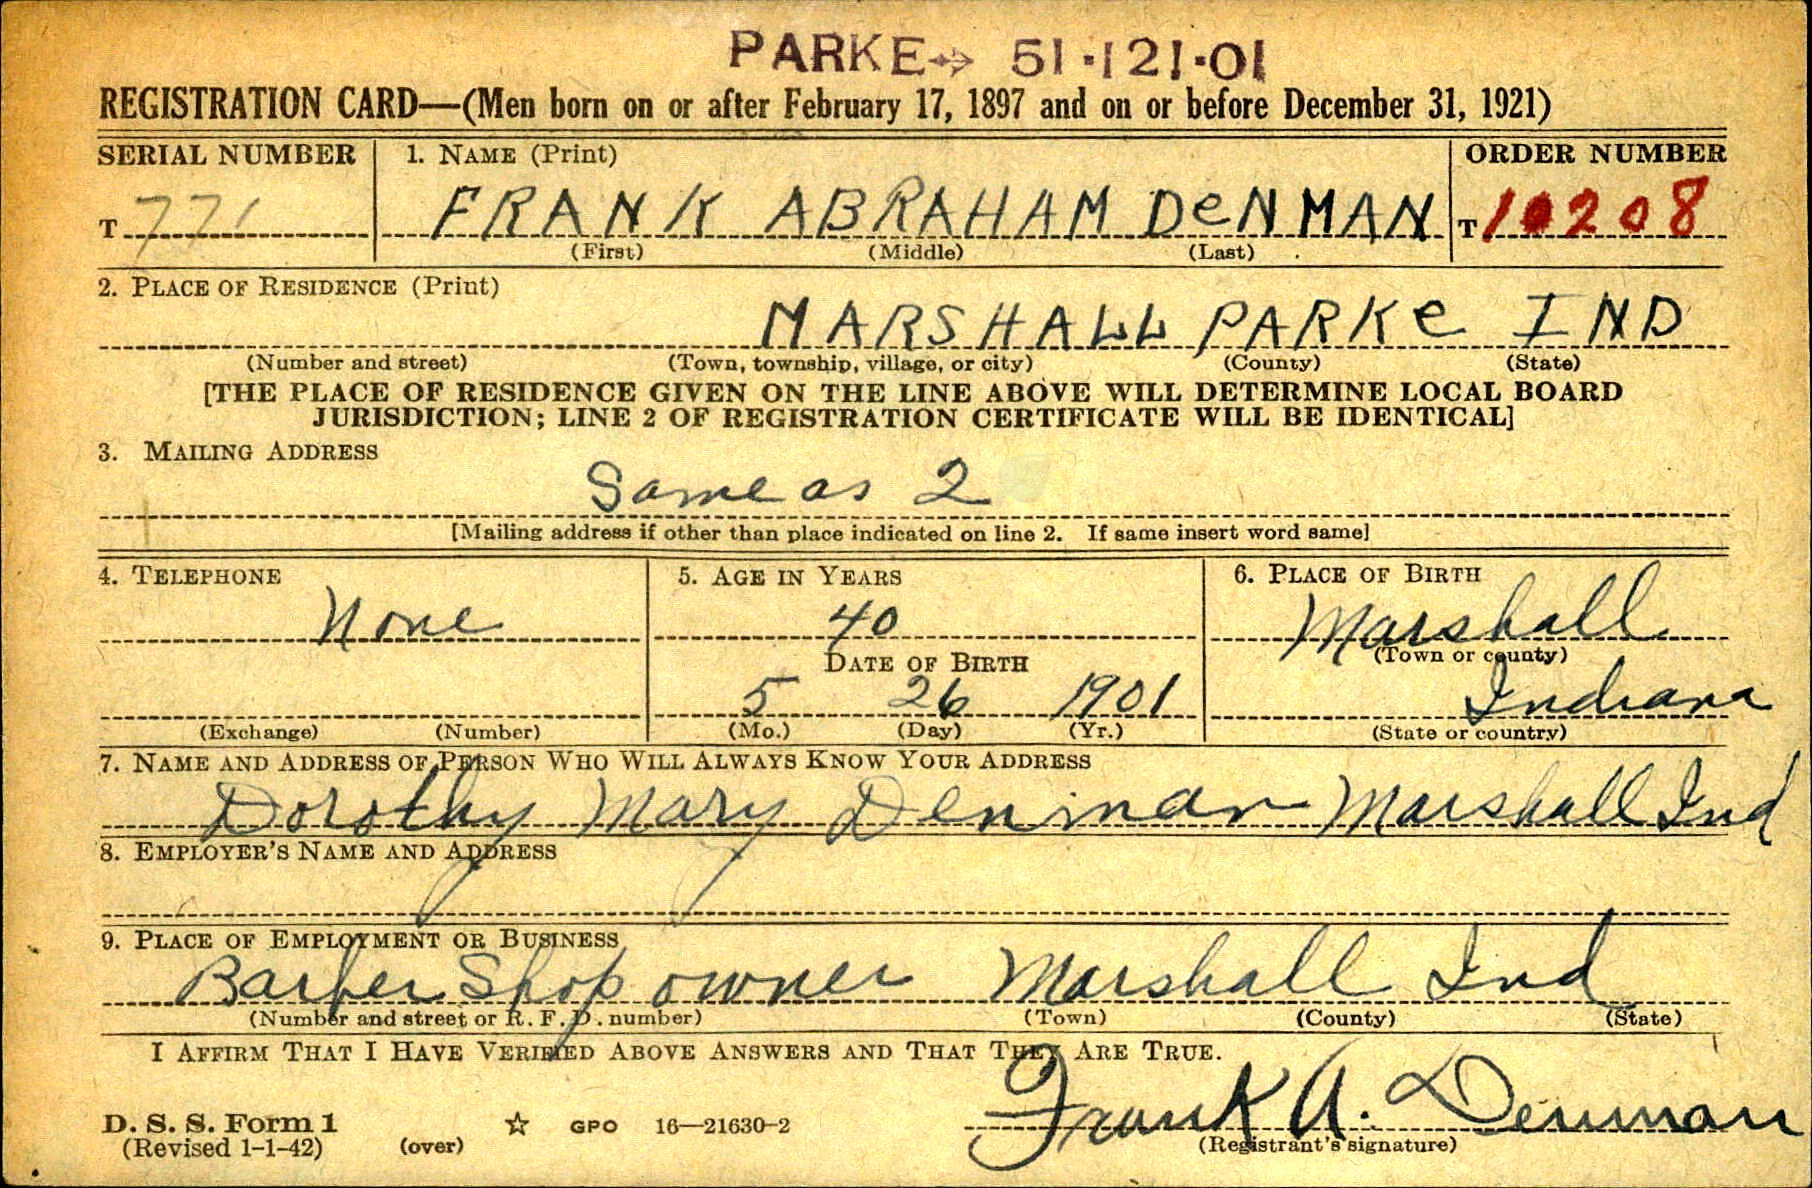 PARKE→ 51·121·01
REGISTRATION CARD—(Men born on or after February 17, 1897 and on or before December 31, 1921)
SERIAL NUMBER 1. NAME (Print) ORDER NUMBER
T 771 FRANK ABRAHAM DeNMAN T 10208
(First) (Middle) (Last)
2. PLACE OF RESIDENCE (Print)
MARSHALL PARKe IND
(Number and street) (Town, township, village, or city) (County) (State)
[THE PLACE OF RESIDENCE GIVEN ON THE LINE ABOVE WILL DETERMINE LOCAL BOARD
JURISDICTION; LINE 2 OF REGISTRATION CERTIFICATE WILL BE IDENTICAL]
3. MAILING ADDRESS
Same as 2
[Mailing address if other than place indicated on line 2. If same insert word same]
4. TELEPHONE 5. AGE IN YEARS 6. PLACE OF BIRTH
None 40 Marshall
DATE OF BIRTH (Town or county)
5 26 1901 Indiana
(Exchange) (Number) (Mo.) (Day) (Yr.) (State or country)
7. NAME AND ADDRESS OF PERSON WHO WILL ALWAYS KNOW YOUR ADDRESS
Dorothy Mary Denman Marshall Ind
8. EMPLOYER'S NAME AND ADDRESS
9. PLACE OF EMPLOYMENT OR BUSINESS
Barber Shop owner Marshall Ind
(Number and street or R. F. D. number) (Town) (County) (State)
I AFFIRM THAT I HAVE VERIFIED ABOVE ANSWERS AND THAT THEY ARE TRUE.
Frank A. Denman
D. S. S. Form 1 ☆ GPO 16—21630-2
(Revised 1-1-42) (over) (Registrant's signature)